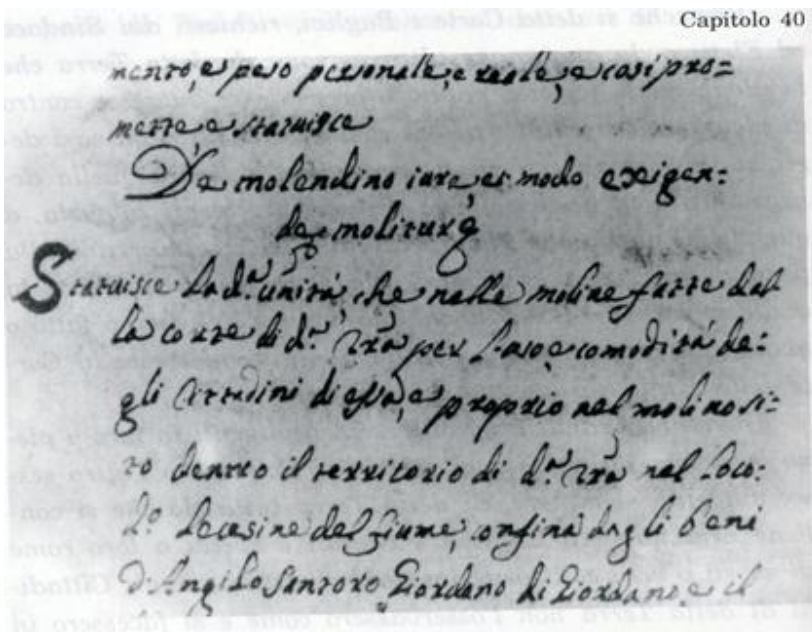 Capitolo 40
mento, e peso personale, e reale, e così pro=
mette e statuisce
De molendino iure, et modo exigen=
de moliturę
Statuisce la d.ª unità, che nelle moline fatte dal
la corte di d.ª Trã per l'uso, e comodità de=
gli Cittadini di essa, e proprio nel molino si=
to dentro il territorio di d.ª Trã nel loco=
d.º le casine del fiume, confina dagli beni
d'Angilo Santoro Giordano di Giordano, e il